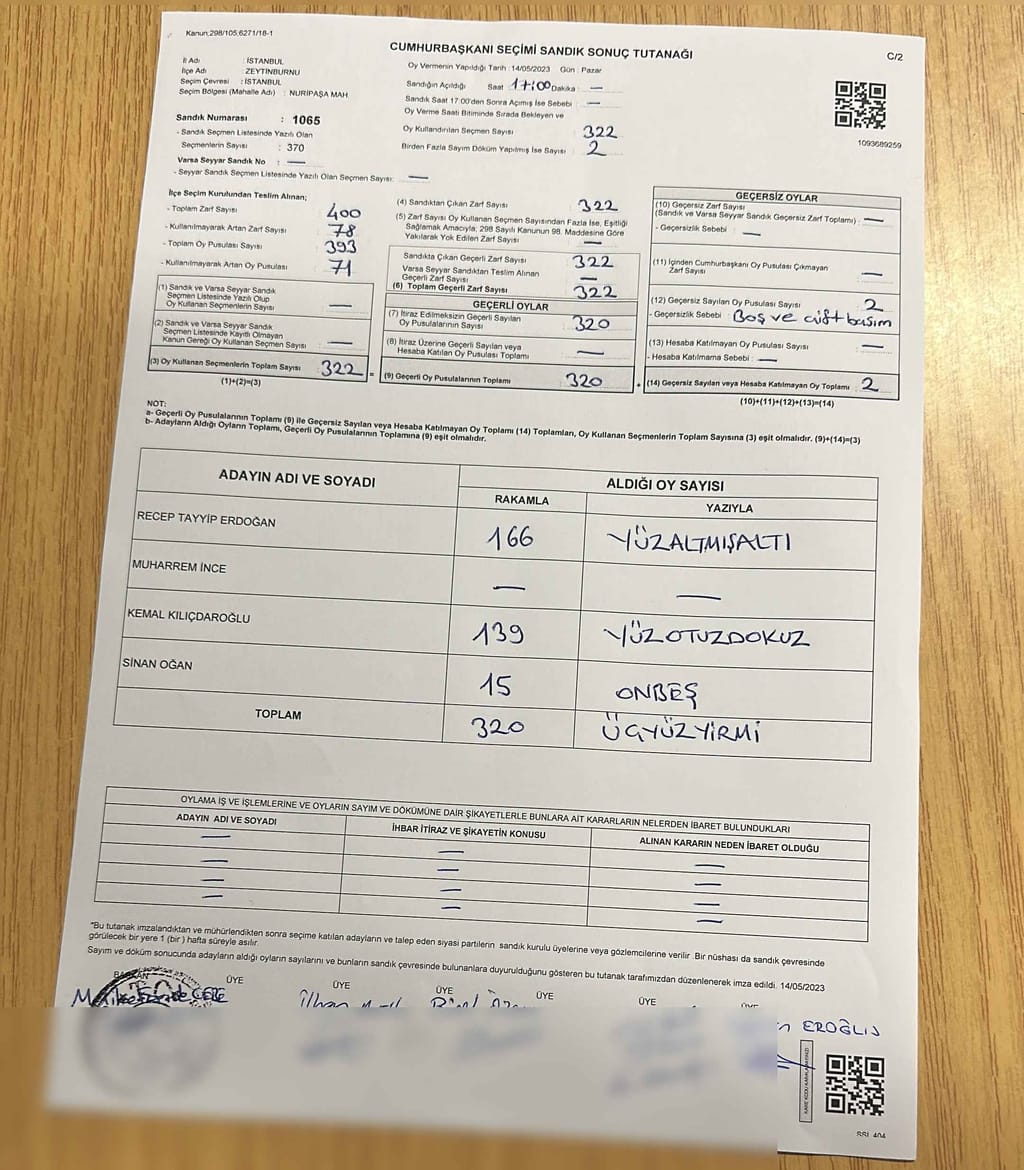 Kanun:298/105;6271/18-1
CUMHURBAŞKANI SEÇİMİ SANDIK SONUÇ TUTANAĞI
C/2
İl Adı : İSTANBUL
İlçe Adı : ZEYTİNBURNU
Seçim Çevresi : İSTANBUL
Seçim Bölgesi (Mahalle Adı) : NURİPAŞA MAH
Sandık Numarası : 1065
- Sandık Seçmen Listesinde Yazılı Olan
Seçmenlerin Sayısı : 370
Varsa Seyyar Sandık No : —
- Seyyar Sandık Seçmen Listesinde Yazılı Olan Seçmen Sayısı: —
Oy Vermenin Yapıldığı Tarih : 14/05/2023 Gün : Pazar
Sandığın Açıldığı Saat 17:00 Dakika : —
Sandık Saat 17:00'den Sonra Açmış İse Sebebi : —
Oy Verme Saati Bitiminde Sırada Bekleyen ve
Oy Kullandırılan Seçmen Sayısı : 322
Birden Fazla Sayım Döküm Yapılmış İse Sayısı : 2
1093689259
İlçe Seçim Kurulundan Teslim Alınan;
- Toplam Zarf Sayısı : 400
- Kullanılmayarak Artan Zarf Sayısı : 78
- Toplam Oy Pusulası Sayısı : 393
- Kullanılmayarak Artan Oy Pusulası : 71
(1) Sandık ve Varsa Seyyar Sandık
Seçmen Listesinde Yazılı Olup
Oy Kullanan Seçmenlerin Sayısı : —
(2) Sandık ve Varsa Seyyar Sandık
Seçmen Listesinde Kayıtlı Olmayan
Kanun Gereği Oy Kullanan Seçmen Sayısı : —
(3) Oy Kullanan Seçmenlerin Toplam Sayısı : 322 =
(1)+(2)=(3)
(4) Sandıktan Çıkan Zarf Sayısı : 322
(5) Zarf Sayısı Oy Kullanan Seçmen Sayısından Fazla İse, Eşitliği
Sağlamak Amacıyla; 298 Sayılı Kanunun 98. Maddesine Göre
Yakılarak Yok Edilen Zarf Sayısı : —
Sandıkta Çıkan Geçerli Zarf Sayısı : 322
Varsa Seyyar Sandıktan Teslim Alınan
Geçerli Zarf Sayısı : —
(6) Toplam Geçerli Zarf Sayısı : 322
GEÇERLİ OYLAR
(7) İtiraz Edilmeksizin Geçerli Sayılan
Oy Pusulalarının Sayısı : 320
(8) İtiraz Üzerine Geçerli Sayılan veya
Hesaba Katılan Oy Pusulası Toplamı : —
(9) Geçerli Oy Pusulalarının Toplamı : 320 +
GEÇERSİZ OYLAR
(10) Geçersiz Zarf Sayısı
(Sandık ve Varsa Seyyar Sandık Geçersiz Zarf Toplamı) : —
- Geçersizlik Sebebi : —
(11) İçinden Cumhurbaşkanı Oy Pusulası Çıkmayan
Zarf Sayısı : —
(12) Geçersiz Sayılan Oy Pusulası Sayısı : 2
- Geçersizlik Sebebi : Boş ve çift basım
(13) Hesaba Katılmayan Oy Pusulası Sayısı : —
- Hesaba Katılmama Sebebi : —
(14) Geçersiz Sayılan veya Hesaba Katılmayan Oy Toplamı : 2
(10)+(11)+(12)+(13)=(14)
NOT:
a- Geçerli Oy Pusulalarının Toplamı (9) ile Geçersiz Sayılan veya Hesaba Katılmayan Oy Toplamı (14) Toplamları, Oy Kullanan Seçmenlerin Toplam Sayısına (3) eşit olmalıdır. (9)+(14)=(3)
b- Adayların Aldığı Oyların Toplamı, Geçerli Oy Pusulalarının Toplamına (9) eşit olmalıdır.
ADAYIN ADI VE SOYADI ALDIĞI OY SAYISI
RAKAMLA YAZIYLA
RECEP TAYYİP ERDOĞAN 166 YÜZALTMIŞALTI
MUHARREM İNCE — —
KEMAL KILIÇDAROĞLU 139 YÜZOTUZDOKUZ
SİNAN OĞAN 15 ONBEŞ
TOPLAM 320 ÜÇYÜZYİRMİ
OYLAMA İŞ VE İŞLEMLERİNE VE OYLARIN SAYIM VE DÖKÜMÜNE DAİR ŞİKAYETLERLE BUNLARA AİT KARARLARIN NELERDEN İBARET BULUNDUKLARI
ADAYIN ADI VE SOYADI İHBAR İTİRAZ VE ŞİKAYETİN KONUSU ALINAN KARARIN NEDEN İBARET OLDUĞU
— — —
— — —
— — —
— — —
*Bu tutanak imzalandıktan ve mühürlendikten sonra seçime katılan adayların ve talep eden siyasi partilerin sandık kurulu üyelerine veya gözlemcilerine verilir. Bir nüshası da sandık çevresinde
görülecek bir yere 1 (bir ) hafta süreyle asılır.
Sayım ve döküm sonucunda adayların aldığı oyların sayılarını ve bunların sandık çevresinde bulunanlara duyurulduğunu gösteren bu tutanak tarafımızdan düzenlenerek imza edildi. 14/05/2023
BAŞKAN ÜYE ÜYE ÜYE ÜYE ÜYE
İlhan
EROĞLU